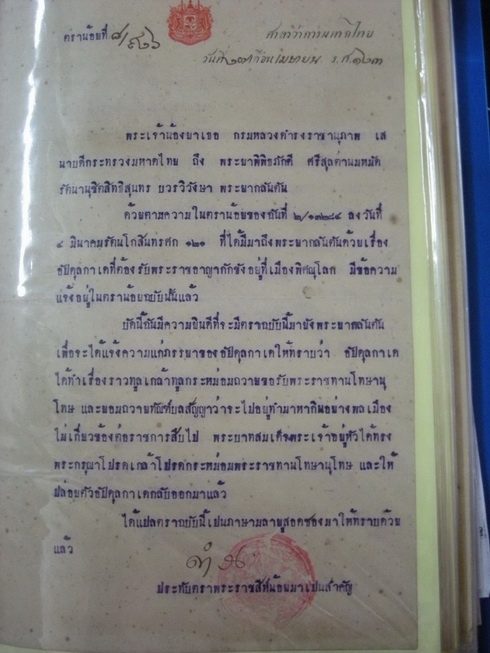 ตราน้อยที่ ๘/๙๖๖
ศาลาว่าการมหาดไทย
วันที่ เดือน เมษายน ร.ศ. ๑๒๓
พระเจ้าน้องยาเธอ กรมหลวงดำรงราชานุภาพ เส
นาบดีกระทรวงมหาดไทย ถึง พระยาพิพิธภักดี ศรีสุลต่านมหมัด
รัตนานุชิตสิทธิสุนทร บวรวิวังษา พระยากลันตัน
ด้วยตามความในตราน้อยของฉันที่ ๒/๑๗๒๘๔ ลงวันที่
๔ มีนาคมรัตนโกสินทรศก ๑๒๑ ที่ได้มีมาถึงพระยากลันตันด้วยเรื่อง
อัปดุลกาเดที่ต้องรับพระราชอาญากักขังอยู่ที่เมืองพิศณุโลก มีข้อความ
แจ้งอยู่ในตราน้อยฉบับนั้นแล้ว
บัดนี้ฉันมีความยินดีที่จะมีตราฉบับนี้มายังพระยากลันตัน
เพื่อจะได้แจ้งความแก่ภรรยาของอัปดุลกาเดให้ทราบว่า อัปดุลกาเด
ได้ทำเรื่องราวทูลเกล้าทูลกระหม่อมถวายขอรับพระราชทานโทษานุ
โทษ และยอมถวายทัณฑ์บลสัญญาว่าจะไปอยู่ทำมาหากินอย่างพลเมือง
ไม่เกี่ยวข้องต่อราชการสืบไป พระบาทสมเด็จพระเจ้าอยู่หัวได้ทรง
พระกรุณาโปรดเกล้าโปรดกระหม่อมพระราชทานโทษานุโทษ และให้
ปล่อยตัวอัปดุลกาเดกลับออกมาแล้ว
ได้แปลตราฉบับนี้เปนภาษามลายูสอดซองมาให้ทราบด้วย
แล้ว
ประทับตราพระราชสีห์น้อยมาเปนสำคัญ